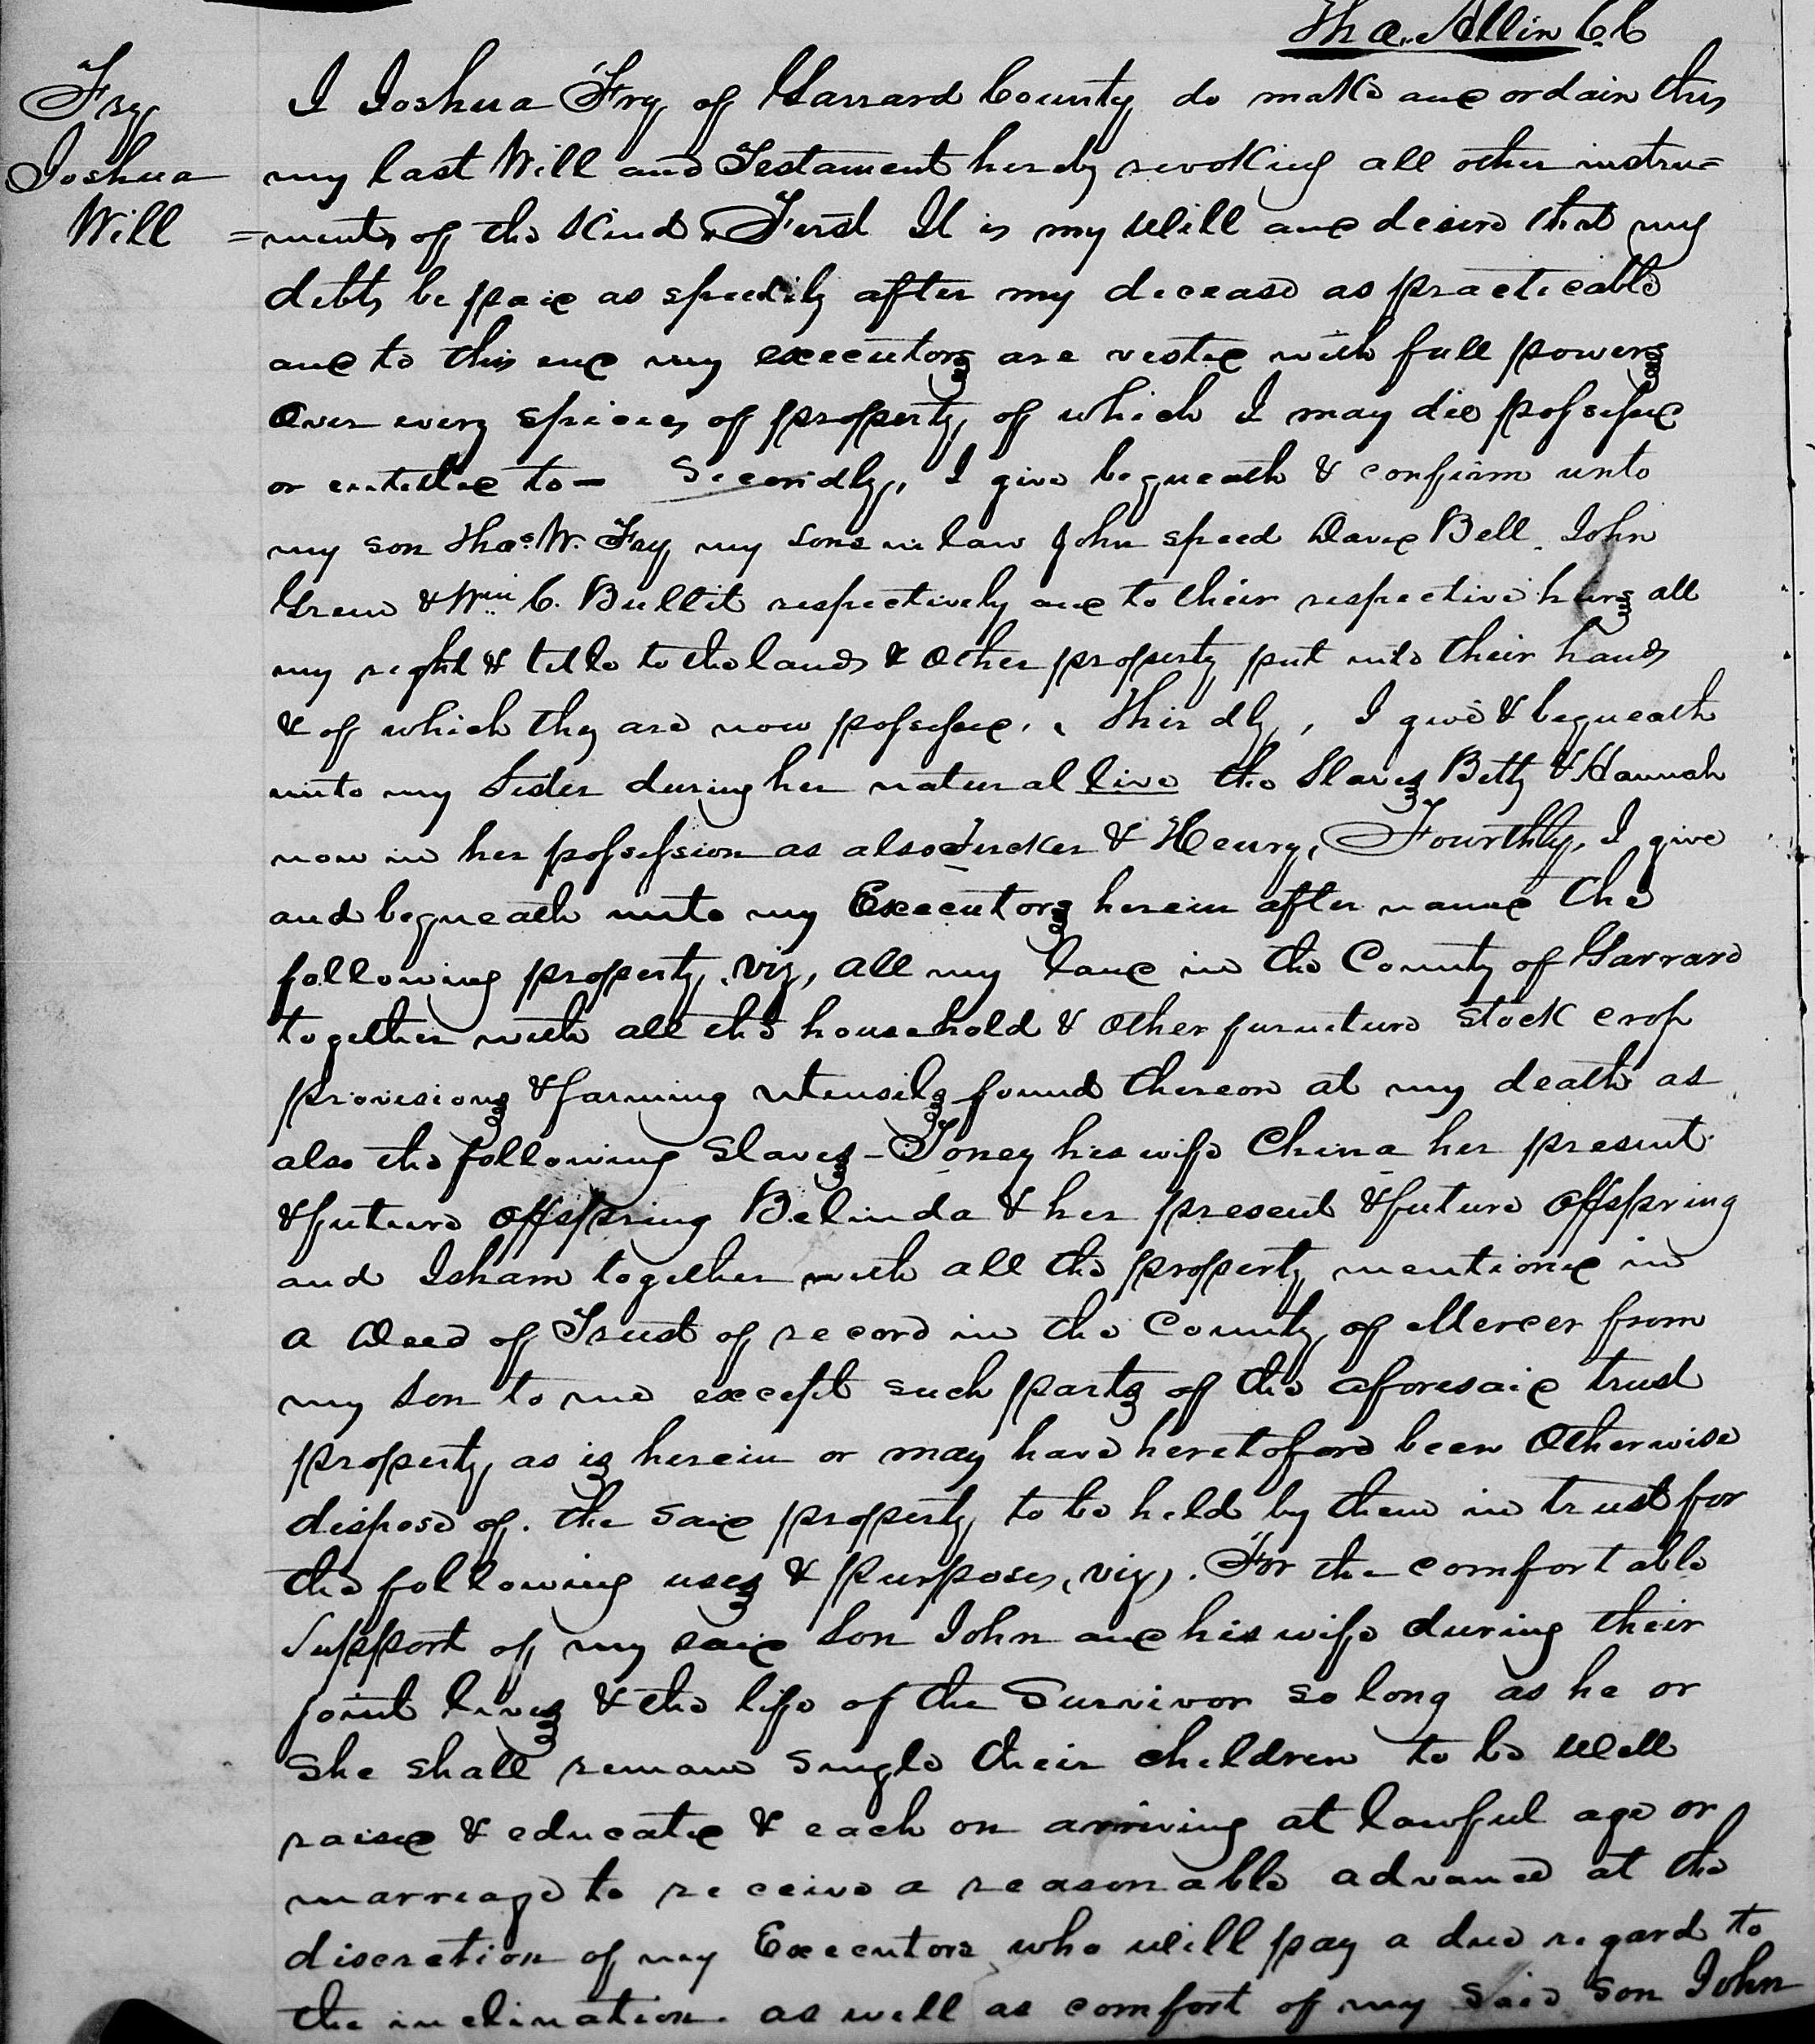 Tha. Allin C.C
Fry
Joshua
Will
I Joshua Fry of Garrard County do make and ordain this
my last Will and Testament hereby revoking all other instru=
=ments of the Kind. First It is my Will and desire that my
debts be paid as speedily after my decease as practicable
and to this end my executors are vested with full powers
Over every species of property of which I may die possessed
or entitled to — Secondly, I give bequeath & confirm unto
my son Thos. W. Fry my sons in law John Speed David Bell. John
Green & Wm. C. Bullit respectively and to their respective heirs all
my right & title to the lands & Other property put into their hands
& of which they are now possessed. Thirdly, I give & bequeath
unto my Sister during her natural live the Slaves Betty & Hannah
now in her possession as also Tucker & Henry, Fourthly, I give
and bequeath unto my Executors herein after named the
following property, viz, all my land in the County of Garrard
together with all the household & Other furniture stock crop
provisions & farming utensils found thereon at my death as
also the following Slaves - Toney his wife China her present
& future offspring Belinda & her present & future offspring
and Isham together with all the property mentioned in
a Deed of Trust of record in the County of Mercer from
my son to me except such parts of the aforesaid trust
property as is herein or may have heretofore been Otherwise
dispose of. the said property to be held by them in trust for
the following uses & purposes, viz, . For the comfortable
Support of my said Son John and his wife during their
joint lives & the life of the Survivor so long as he or
She shall remane single their children to be Well
raised & educated & each on arriving at lawful age or
marriage to receive a reasonable advance at the
discretion of my Executors who will pay a due regard to
the inclination. as well as comfort of my said son John